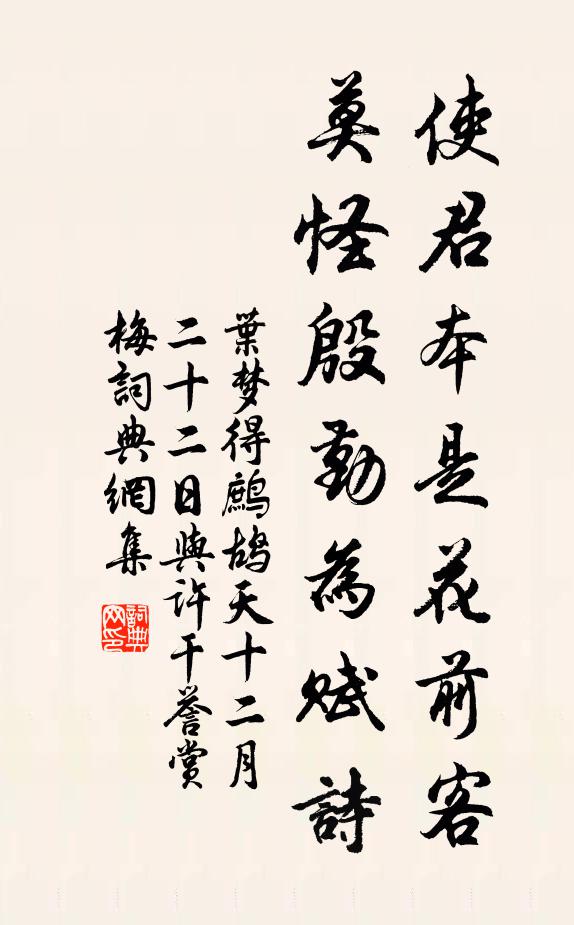 使君本是花前客
莫怪殷勤為賦詩
葉梦得鷓鴣天十二月
二十二日與許干譽賞
梅詞典網集
詞典網印